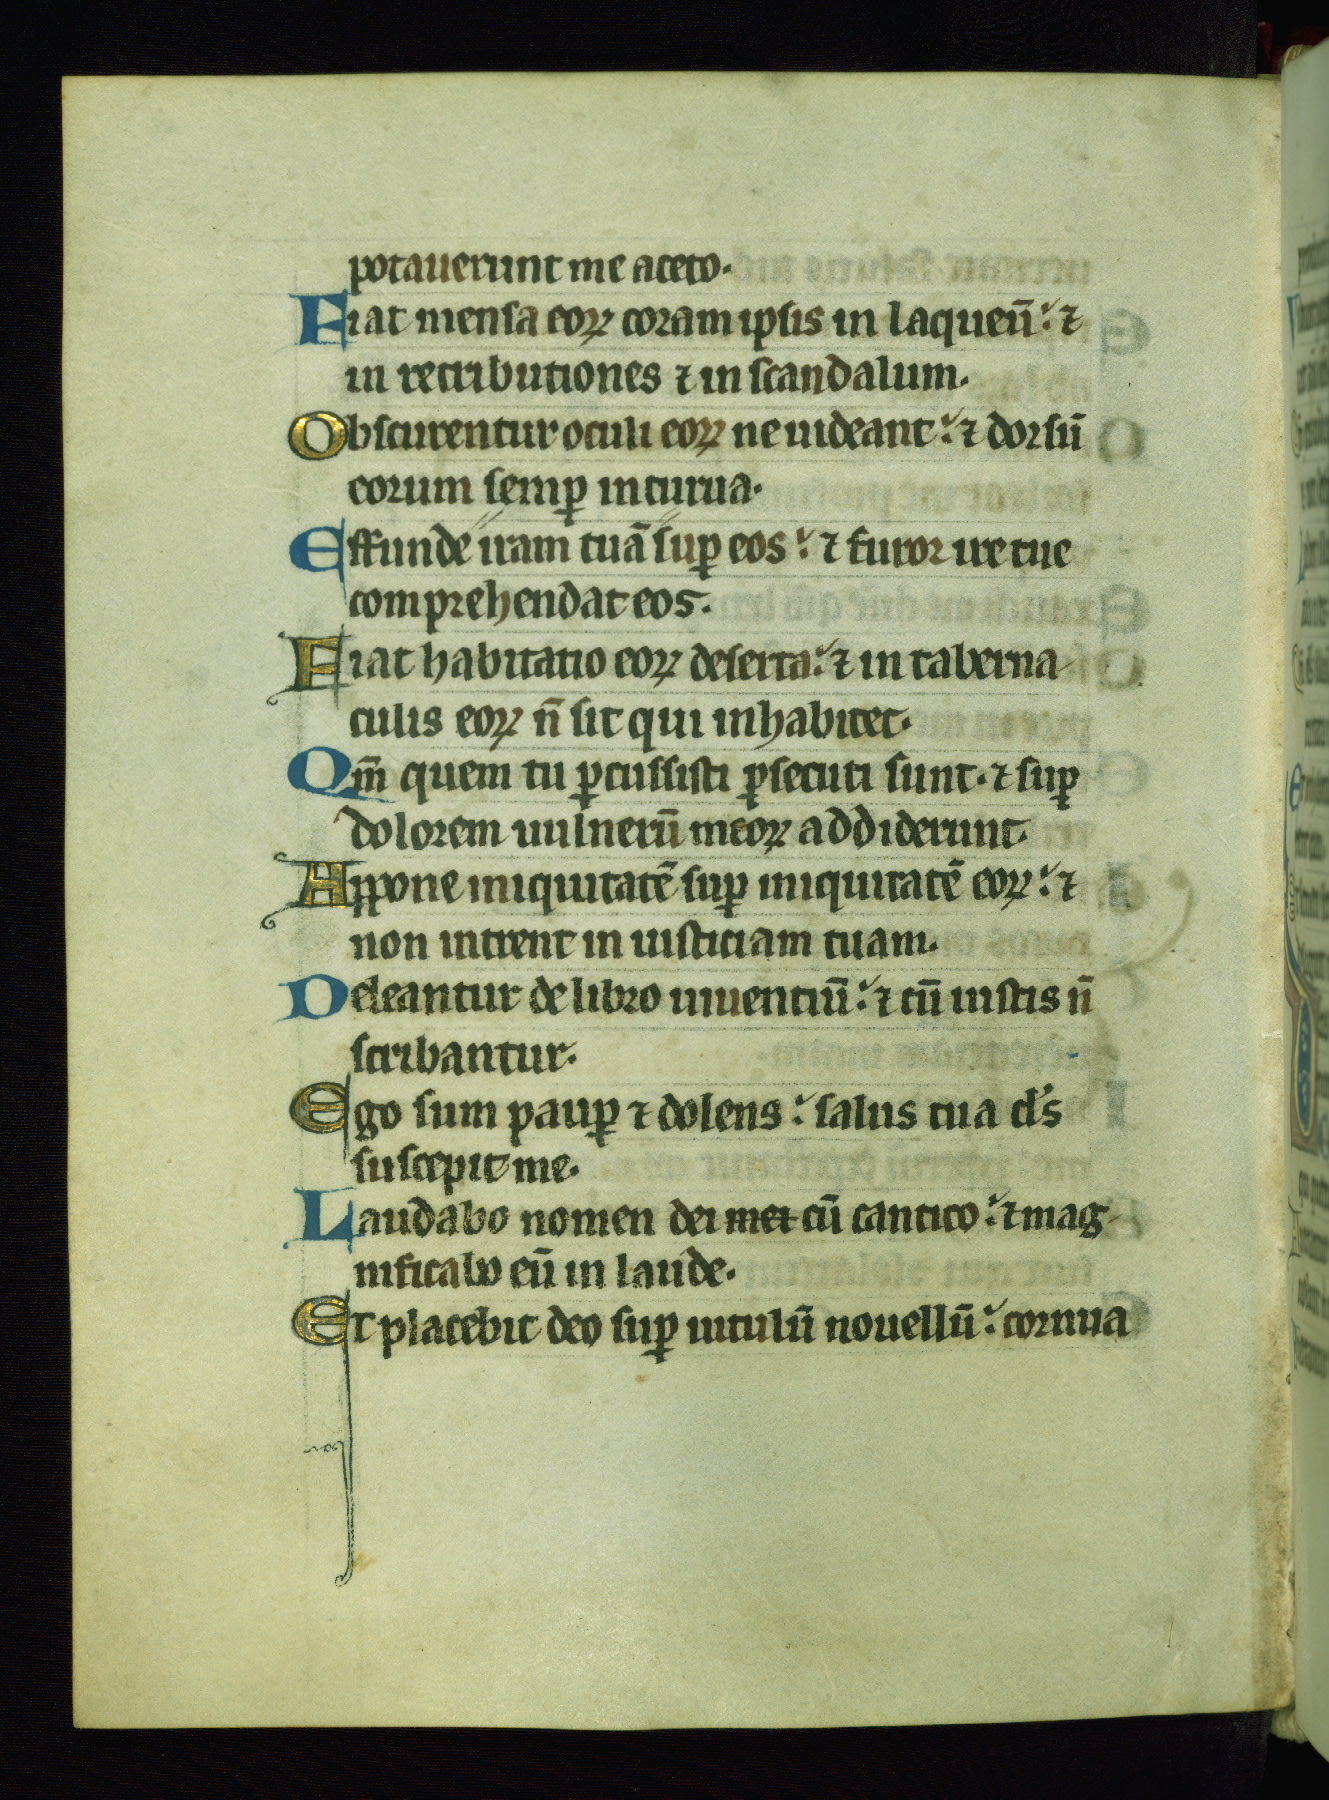 potauerunt me aceto.
Fiat mensa eoꝝ coram ipsis in laqueū: ⁊
in retributiones ⁊ in scandalum.
Obscurentur oculi eoꝝ ne uideant: ⁊ dorsū
eorum semꝑ incurua.
Effunde iram tuā suꝑ eos: ⁊ furor ire tue
comprehendat eos.
Fiat habitatio eoꝝ deserta: ⁊ in taberna
culis eoꝝ n̄ sit qui inhabitet.
Qm̄ quem tu ꝑcussisti ꝑsecuti sunt. ⁊ suꝑ
dolorem uulnerū meoꝝ addiderunt.
Appone iniquitatē suꝑ iniquitatē eoꝝ: ⁊
non intrent in iusticiam tuam.
Deleantur de libro uiuentiū: ⁊ cū iustis n̄
scribantur.
Ego sum pauꝑ ⁊ dolens: salus tua ds̄
suscepit me.
Laudabo nomen dei mei cū cantico: ⁊ mag
nificabo eū in laude.
Et placebit deo suꝑ uitulū nouellū: cornua